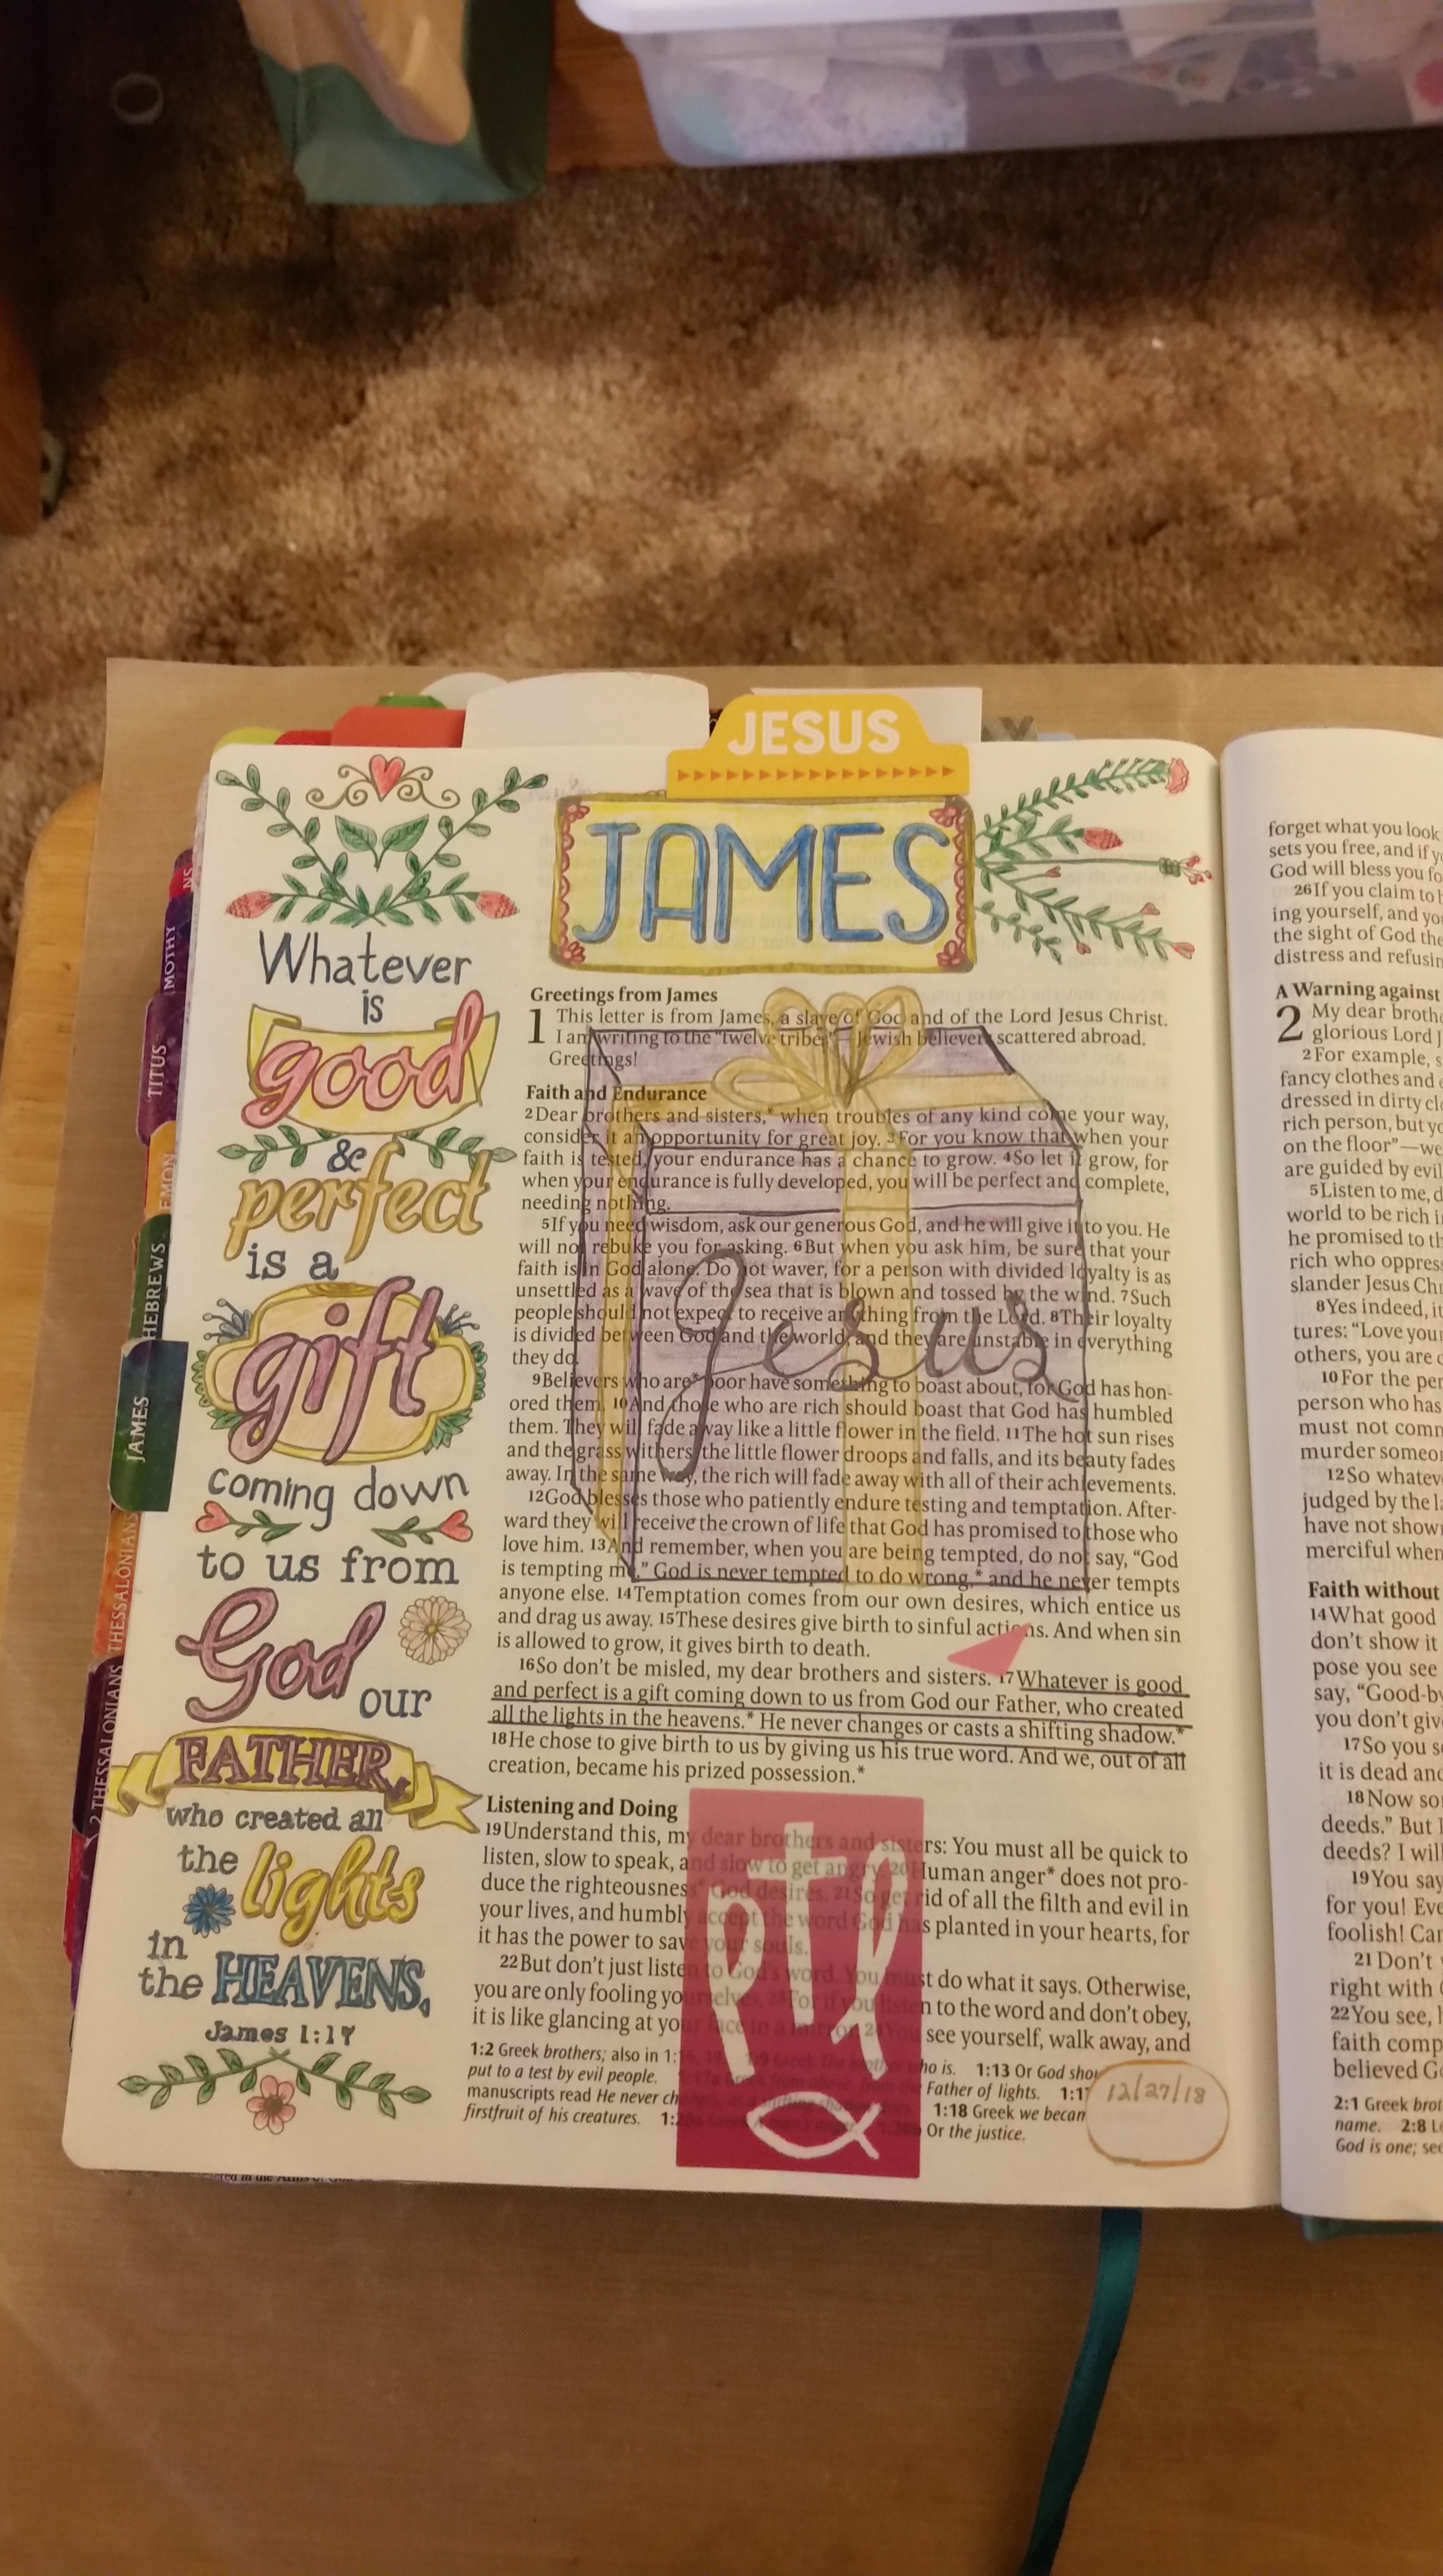 JESUS
JAMES
Whatever
is
good
&
perfect
is a
gift
coming down
to us from
God
our
FATHER,
who created all
the lights
in
the HEAVENS.
James 1:17
NS
MOTHY
TITUS
EMON
HEBREWS
JAMES
THESSALONIANS
2 THESSALONIANS
Greetings from James
1 This letter is from James, a slave of God and of the Lord Jesus Christ.
I am writing to the "twelve tribes"—Jewish believers scattered abroad.
Greetings!
Faith and Endurance
2Dear brothers and sisters,* when troubles of any kind come your way,
consider it an opportunity for great joy. 3For you know that when your
faith is tested, your endurance has a chance to grow. 4So let it grow, for
when your endurance is fully developed, you will be perfect and complete,
needing nothing.
5If you need wisdom, ask our generous God, and he will give it to you. He
will not rebuke you for asking. 6But when you ask him, be sure that your
faith is in God alone. Do not waver, for a person with divided loyalty is as
unsettled as a wave of the sea that is blown and tossed by the wind. 7Such
people should not expect to receive anything from the Lord. 8Their loyalty
is divided between God and the world, and they are unstable in everything
they do.
Jesus
9Believers who are* poor have something to boast about, for God has hon-
ored them. 10And those who are rich should boast that God has humbled
them. They will fade away like a little flower in the field. 11The hot sun rises
and the grass withers; the little flower droops and falls, and its beauty fades
away. In the same way, the rich will fade away with all of their achievements.
12God blesses those who patiently endure testing and temptation. After-
ward they will receive the crown of life that God has promised to those who
love him. 13And remember, when you are being tempted, do not say, "God
is tempting me." God is never tempted to do wrong,* and he never tempts
anyone else. 14Temptation comes from our own desires, which entice us
and drag us away. 15These desires give birth to sinful actions. And when sin
is allowed to grow, it gives birth to death.
16So don't be misled, my dear brothers and sisters. 17Whatever is good
and perfect is a gift coming down to us from God our Father, who created
all the lights in the heavens.* He never changes or casts a shifting shadow.*
18He chose to give birth to us by giving us his true word. And we, out of all
creation, became his prized possession.*
Listening and Doing
19Understand this, my dear brothers and sisters: You must all be quick to
listen, slow to speak, and slow to get angry. 20Human anger* does not pro-
duce the righteousness* God desires. 21So get rid of all the filth and evil in
your lives, and humbly accept the word God has planted in your hearts, for
it has the power to save your souls.
22But don't just listen to God's word. You must do what it says. Otherwise,
you are only fooling yourselves. 23For if you listen to the word and don't obey,
it is like glancing at your face in a mirror. 24You see yourself, walk away, and
ptl
1:2 Greek brothers; also in 1:
put to a test by evil people. Father of lights. 1:17
manuscripts read He never 1:18 Greek we
firstfruit of his creatures. Or the justice.
who is. 1:13 Or God
12/27/18
forget what you look
sets you free, and if
God will bless you
26If you claim to
ing yourself, and
the sight of God the
distress and
A Warning against
2 My dear
glorious Lord
2For example,
fancy clothes and
dressed in dirty
rich person, but
on the floor"—
are guided by evil
5Listen to me,
world to be rich
he promised to
rich who
slander Jesus
8Yes indeed, it
tures: "Love your
others, you are
10For the
person who has
must not
murder
12So
judged by the
have not
merciful when
Faith without
14What good
don't show it
pose you see
say,
you don't
17So you
it is dead and
18Now
deeds." But
deeds? I will
19You say
for you!
foolish!
21Don't
right with
22You see,
faith
believed
2:1 Greek
name. 2:8
God is one; see